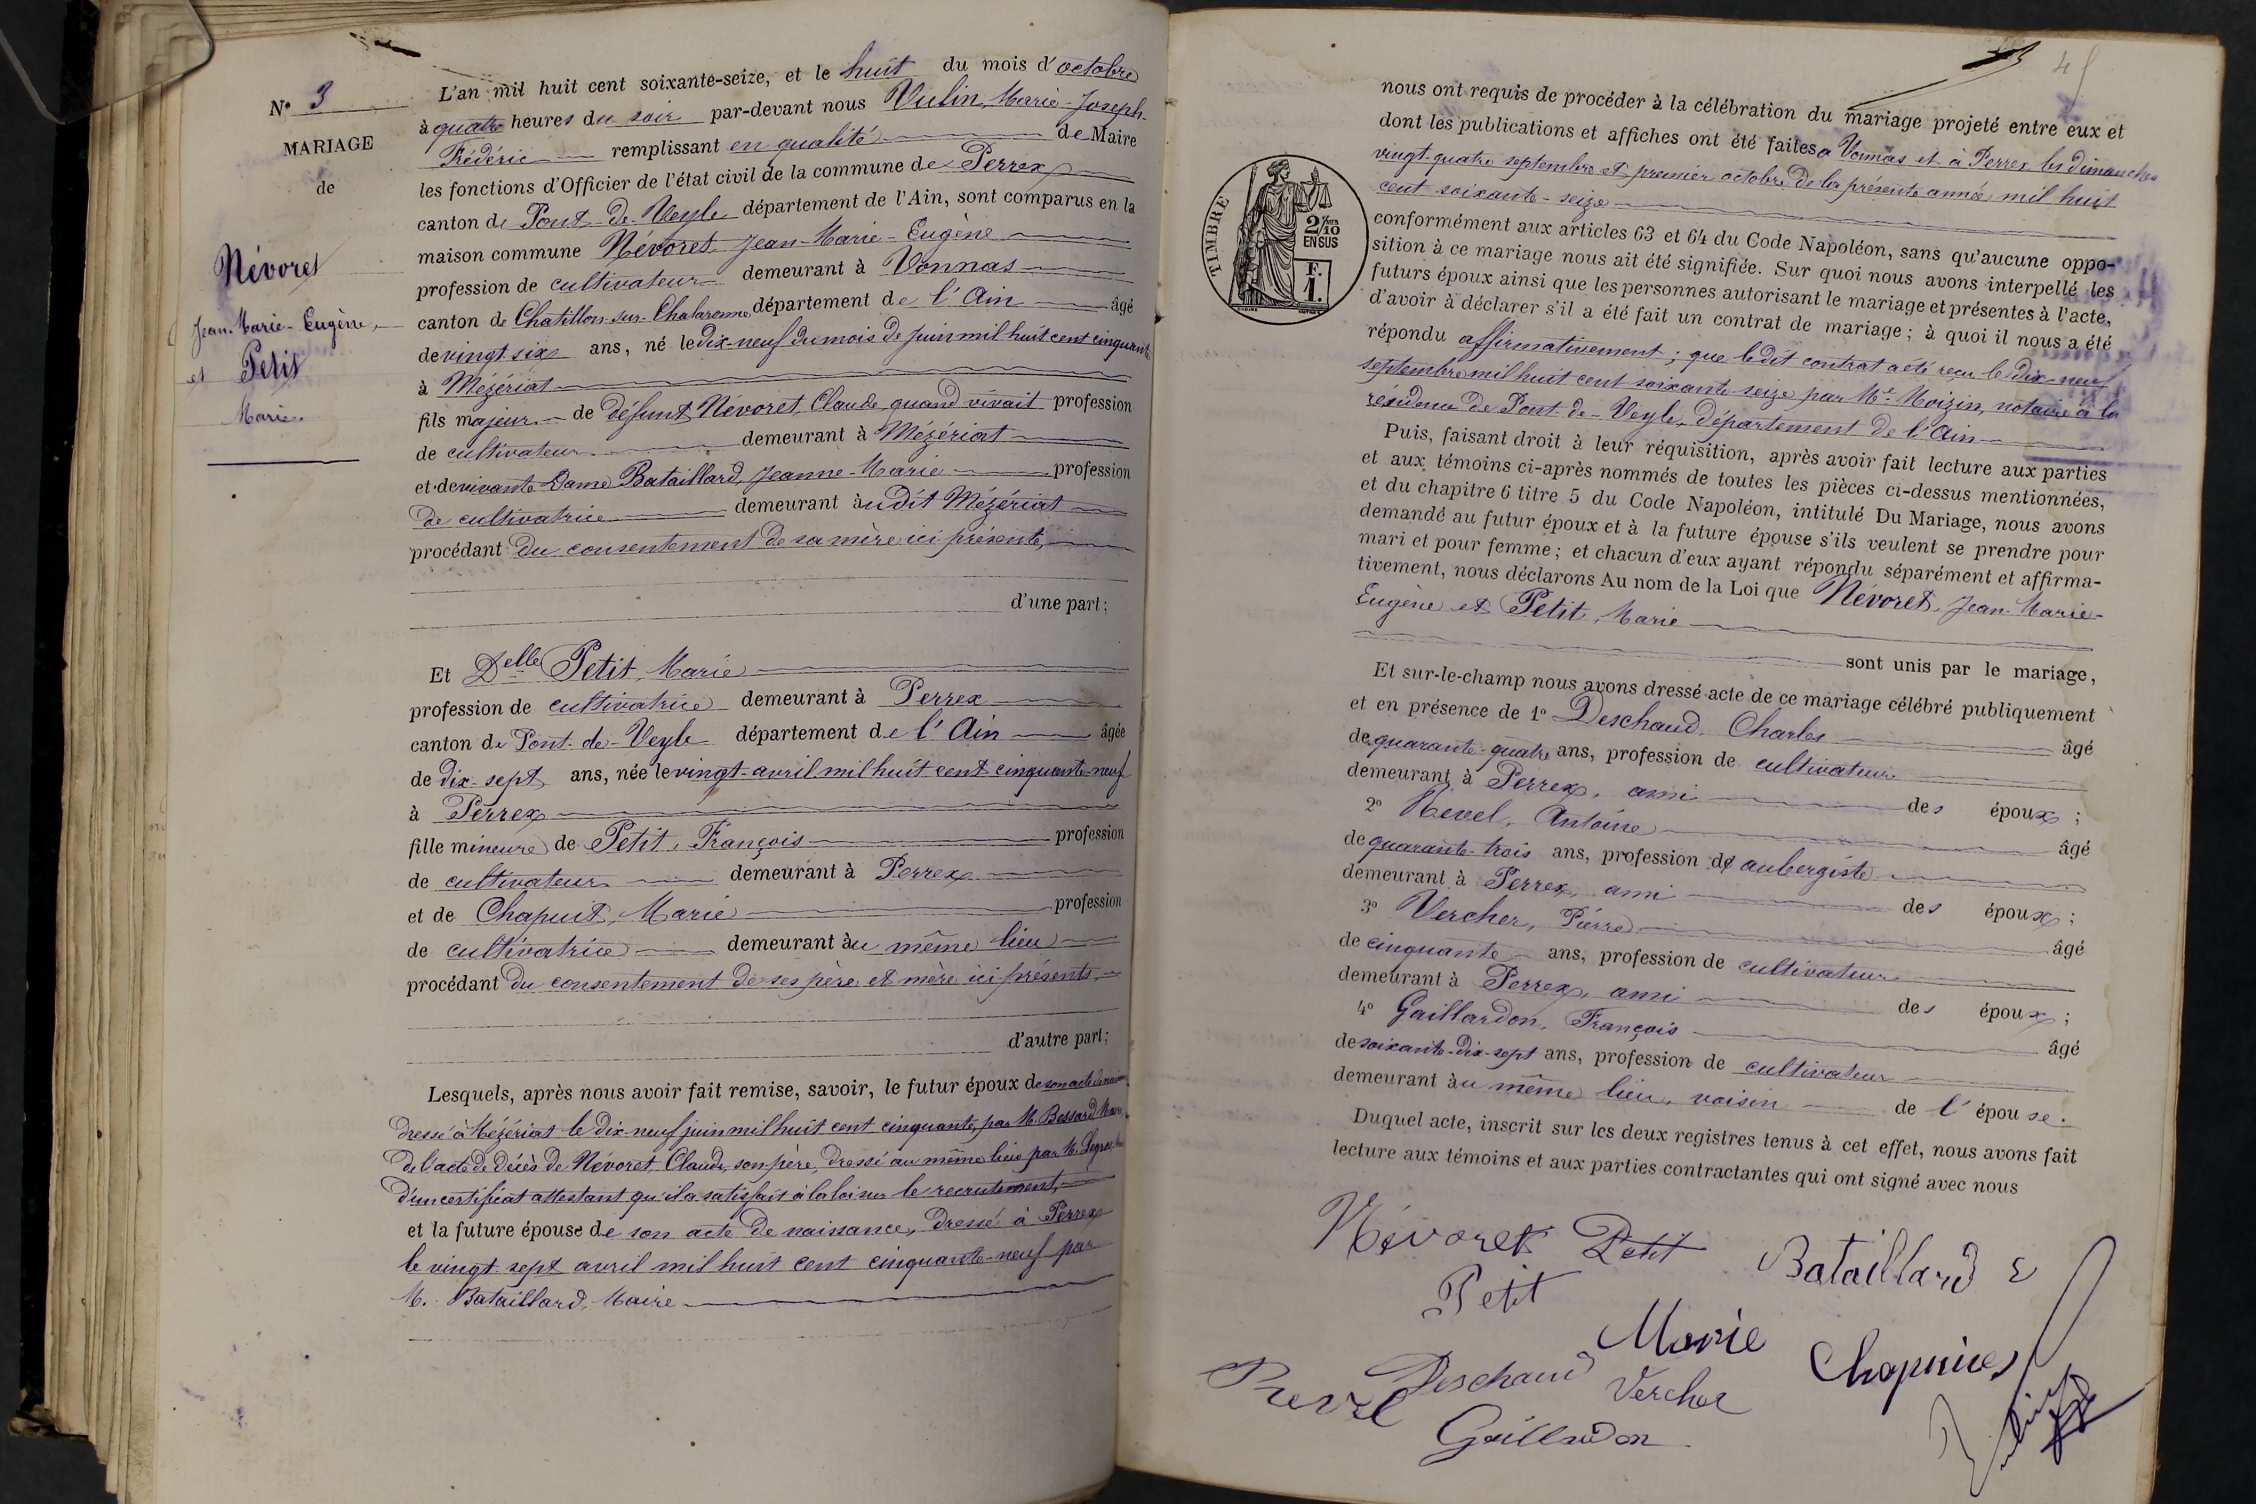 N° 3
MARIAGE
de
Névoret
Jean-Marie-Eugène,
et Petit
Marie.
L'an mil huit cent soixante-seize, et le huit du mois d'octobre
à quatre heures du soir par-devant nous Vulin, Marie-Joseph-
Frédéric remplissant en qualité de Maire
les fonctions d'Officier de l'état civil de la commune de Perrex
canton de Pont-de-Veyle département de l'Ain, sont comparus en la
maison commune Névoret Jean-Marie-Eugène
profession de cultivateur demeurant à Vonnas
canton de Chatillon-sur-Chalaronne département de l'Ain âgé
de vingt six ans, né le dix-neuf du mois de juin mil huit cent cinquante
à Mézériat
fils majeur de défunt Névoret, Claude, quand vivait profession
de cultivateur demeurant à Mézériat
et de vivante Dame Bataillard, Jeanne-Marie profession
de cultivatrice demeurant àudit Mézériat
procédant du consentement de sa mère ici présente,
d'une part;
Et Delle Petit, Marie
profession de cultivatrice demeurant à Perrex
canton de Pont-de-Veyle département de l'Ain âgée
de dix-sept ans, née le vingt-avril mil huit cent cinquante-neuf
à Perrex
fille mineure de Petit, François profession
de cultivateur demeurant à Perrex
et de Chapuit, Marie profession
de cultivatrice demeurant àu même lieu
procédant du consentement de ses père et mère ici présents,
d'autre part;
Lesquels, après nous avoir fait remise, savoir, le futur époux de son acte de
dressé à Mézériat le dix-neuf juin mil huit cent cinquante, par M. Bossard Maire,
de l'acte de décès de Névoret, Claude, son père, dressé au même lieu par M.
d'un certificat attestant qu'il a satisfait à la loi sur le recrutement,
et la future épouse de son acte de naissance, dressé à Perrex
le vingt-sept avril mil huit cent cinquante-neuf par
M. Bataillard, Maire
45
nous ont requis de procéder à la célébration du mariage projeté entre eux et
dont les publications et affiches ont été faites à Vonnas et à Perrex les dimanches
vingt-quatre septembre et premier octobre de la présente année mil huit
cent soixante-seize
TIMBRE
2/10
EN SUS
F.
1.
conformément aux articles 63 et 64 du Code Napoléon, sans qu'aucune oppo-
sition à ce mariage nous ait été signifiée. Sur quoi nous avons interpellé les
futurs époux ainsi que les personnes autorisant le mariage et présentes à l'acte,
d'avoir à déclarer s'il a été fait un contrat de mariage; à quoi il nous a été
répondu affirmativement; que ledit contrat a été reçu le dix-neuf
septembre mil huit cent soixante-seize par Me Moizin, notaire à la
résidence de Pont-de-Veyle, département de l'Ain
Puis, faisant droit à leur réquisition, après avoir fait lecture aux parties
et aux témoins ci-après nommés de toutes les pièces ci-dessus mentionnées,
et du chapitre 6 titre 5 du Code Napoléon, intitulé Du Mariage, nous avons
demandé au futur époux et à la future épouse s'ils veulent se prendre pour
mari et pour femme; et chacun d'eux ayant répondu séparément et affirma-
tivement, nous déclarons Au nom de la Loi que Névoret, Jean-Marie-
Eugène et Petit, Marie
sont unis par le mariage,
Et sur-le-champ nous avons dressé acte de ce mariage célébré publiquement
et en présence de 1° Deschaud, Charles âgé
de quarante-quatre ans, profession de cultivateur
demeurant à Perrex, ami des époux;
2° Revel, Antoine âgé
de quarante-trois ans, profession d'aubergiste
demeurant à Perrex, ami des époux;
3° Vercher, Pierre âgé
de cinquante ans, profession de cultivateur
demeurant à Perrex, ami des époux;
4° Gaillardon, François âgé
de soixante-dix-sept ans, profession de cultivateur
demeurant àu même lieu, voisin de l'épouse.
Duquel acte, inscrit sur les deux registres tenus à cet effet, nous avons fait
lecture aux témoins et aux parties contractantes qui ont signé avec nous
Névoret Petit Bataillard
Petit
Marie Chapuis
Revel Deschaud Vercher
Gaillardon
Vulin